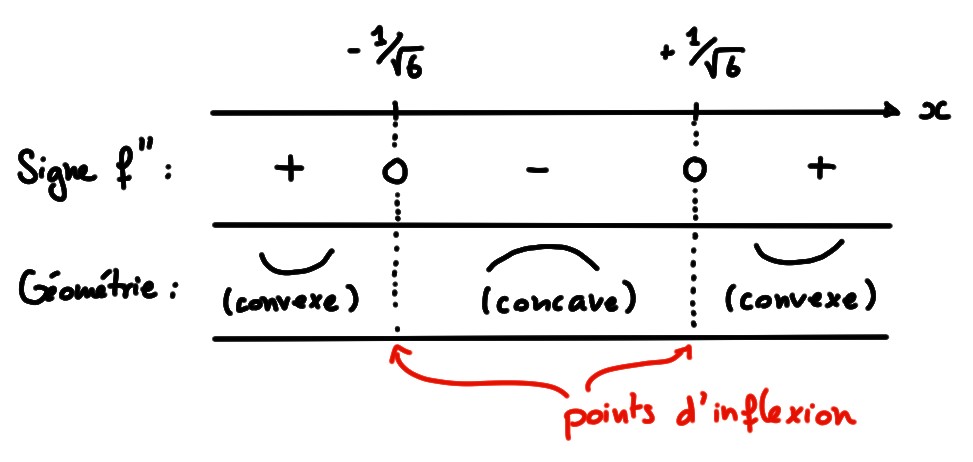 - 1/√6 + 1/√6
x
Signe f" : + 0 - 0 +
Géométrie : (convexe) (concave) (convexe)
points d'inflexion